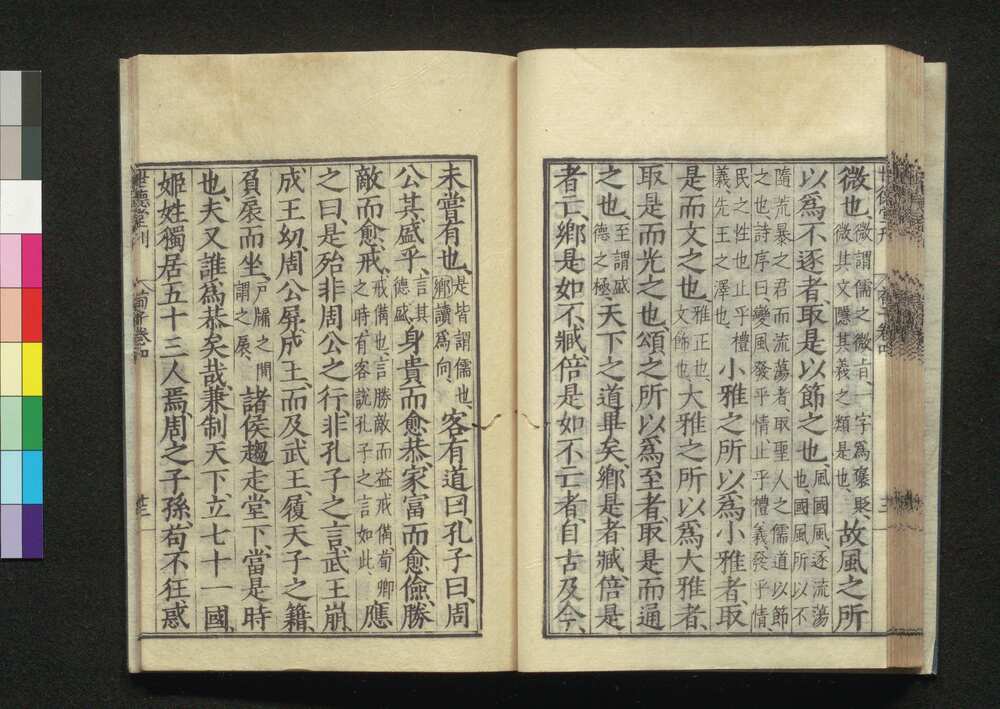 微也、微謂儒之微旨、一字爲襃貶、微其文隱其義之類是也、故風之所
以爲不逐者、取是以節之也、風國風、逐流蕩也、國風所以不
隨荒暴之君而流蕩者、取聖人之儒道以節之也、詩序曰、變風發乎情、止乎禮義、發乎情、
民之性也、止乎禮義、先王之澤也、小雅之所以爲小雅者、取
是而文之也、雅正也、文飾也、大雅之所以爲大雅者、
取是而光之也、頌之所以爲至者、取是而通
之也、至謂盛德之極、天下之道畢矣、鄕是者臧、倍是
者亡、鄕是如不臧、倍是如不亡者、自古及今、
未嘗有也、是皆謂儒也、鄕讀爲向、客有道曰、孔子曰、周
公其盛乎、言其德盛、身貴而愈恭、家富而愈儉、勝
敵而愈戒、戒備也、言勝敵而益戒備、荀卿之時、有客說孔子之言如此、應
之曰、是殆非周公之行、非孔子之言、武王崩、
成王幼、周公屏成王、而及武王、履天子之籍、
負扆而坐、戶牖之閒謂之扆、諸侯趨走堂下、當是時
也、夫又誰爲恭矣哉、兼制天下、立七十一國、
姬姓獨居五十三人焉、周之子孫、苟不狂惑
世德堂刊 荀子卷四